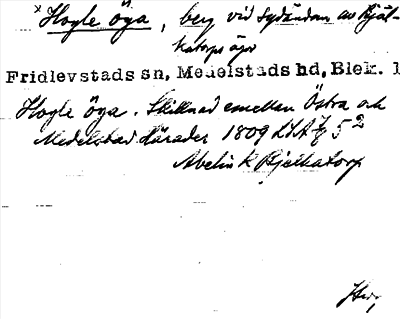 x Hogle öga, berg vid sydändan av Bjäl-
katorps ägor
Fridlevstads sn, Medelstads hd, Blek. l
Hogle öga. Skillnad emellan Östra och
Medelstad Härader 1809 LSA 5²
Abelin K Bjelkatorp